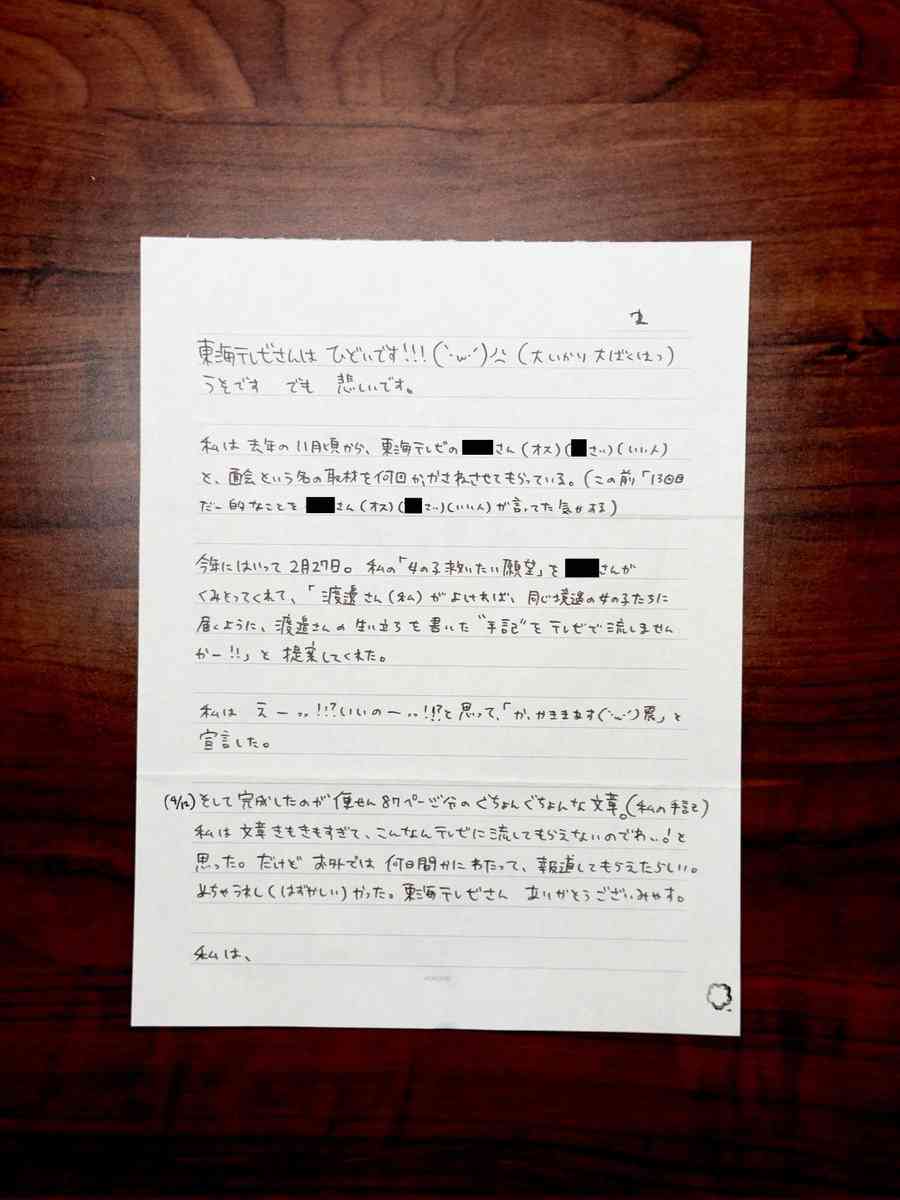 東海テレビさんは ひどいです!!!(`･ω･´) (大いかり大ばくはつ)
うそです でも 悲しいです。
私は 去年の 11月頃から、東海テレビの さん (オス)( さい)(いい人)
と、面会という名の取材を何回かかさねさせてもらっている。(この前「13回目
だー的なことを さん(オス)( さい)(いい人)が言ってた気がする)
今年にはいって 2月27日。 私の「女の子救いたい願望」を さんが
くみとってくれて、「渡邊さん(私)がよければ、同じ境遇の女の子たちに
届くように、渡邊さんの生い立ちを書いた“手記”をテレビで流しません
かー!!」と 提案してくれた。
私は えー..!!?いいのー..!!?と思って、「か、かききます(`･ω･´)震」と
宣言した。
(4/12)そして完成したのが 便せん87ページ分のぐちょんぐちょんな文章。(私の手記)
私は文章きもきもすぎて、こんなんテレビに流してもらえないのでわ..!と
思った。だけど お外では 何日間かにわたって、報道してもらえたらしい。
めちゃうれし(はずかしい)かった。東海テレビさん ありがとうございみゃす。
私は、